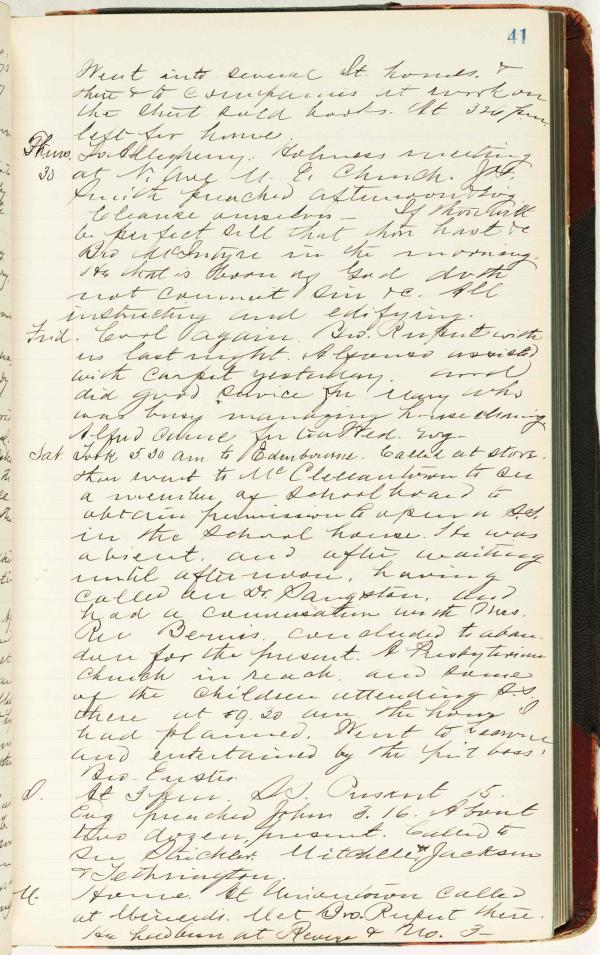 41
Went into several St. homes. &
then & to companies at work on
the shut sold books. At 326 pm.
left for home.
Thurs. To Allegheny. Holiness meeting
30 at N. Ave M. E. Church. Jos.
Smith preached afternoon &
Cleanse ourselves — If thou wilt
be perfect sell that thou hast &c
Bro McIntyre in the morning.
He that is born of God doth
not commit sin &c. All
instructing and edifying.
Frid. Cool again. Bro. Rupert with
us last night. Alfonso assisted
with carpet yesterday. and
did good service for Mary who
was busy managing housecleaning
Alfred came for tea Wed. Evg.
Sat Took 5 30 am to Edenbourne. Called at store.
then went to McClellantown to see
a member of school board to
obtain permission to open a S.S.
in the school house. He was
absent, and after waiting
until afternoon, having
called on Dr. Sangston, and
had a conversation with Mrs.
Rev Bemis, concluded to aban-
don for the present. A Presbyterian
church in reach, and some
of the children attending S.S.
there at 9.30 am the hour I
had planned. Went to
and entertained by the pit boss.
Bro. Eustis.
S. At 3 pm, S.S. Present 15.
Evg preached John 3.16. About
two dozen present. Called to
see Strickler. Mitchell, Jackson
& Tethrington.
M. Home. At Uniontown called
at Minerds. Met Bro. Rupert there.
He had been at Revere & No. 3